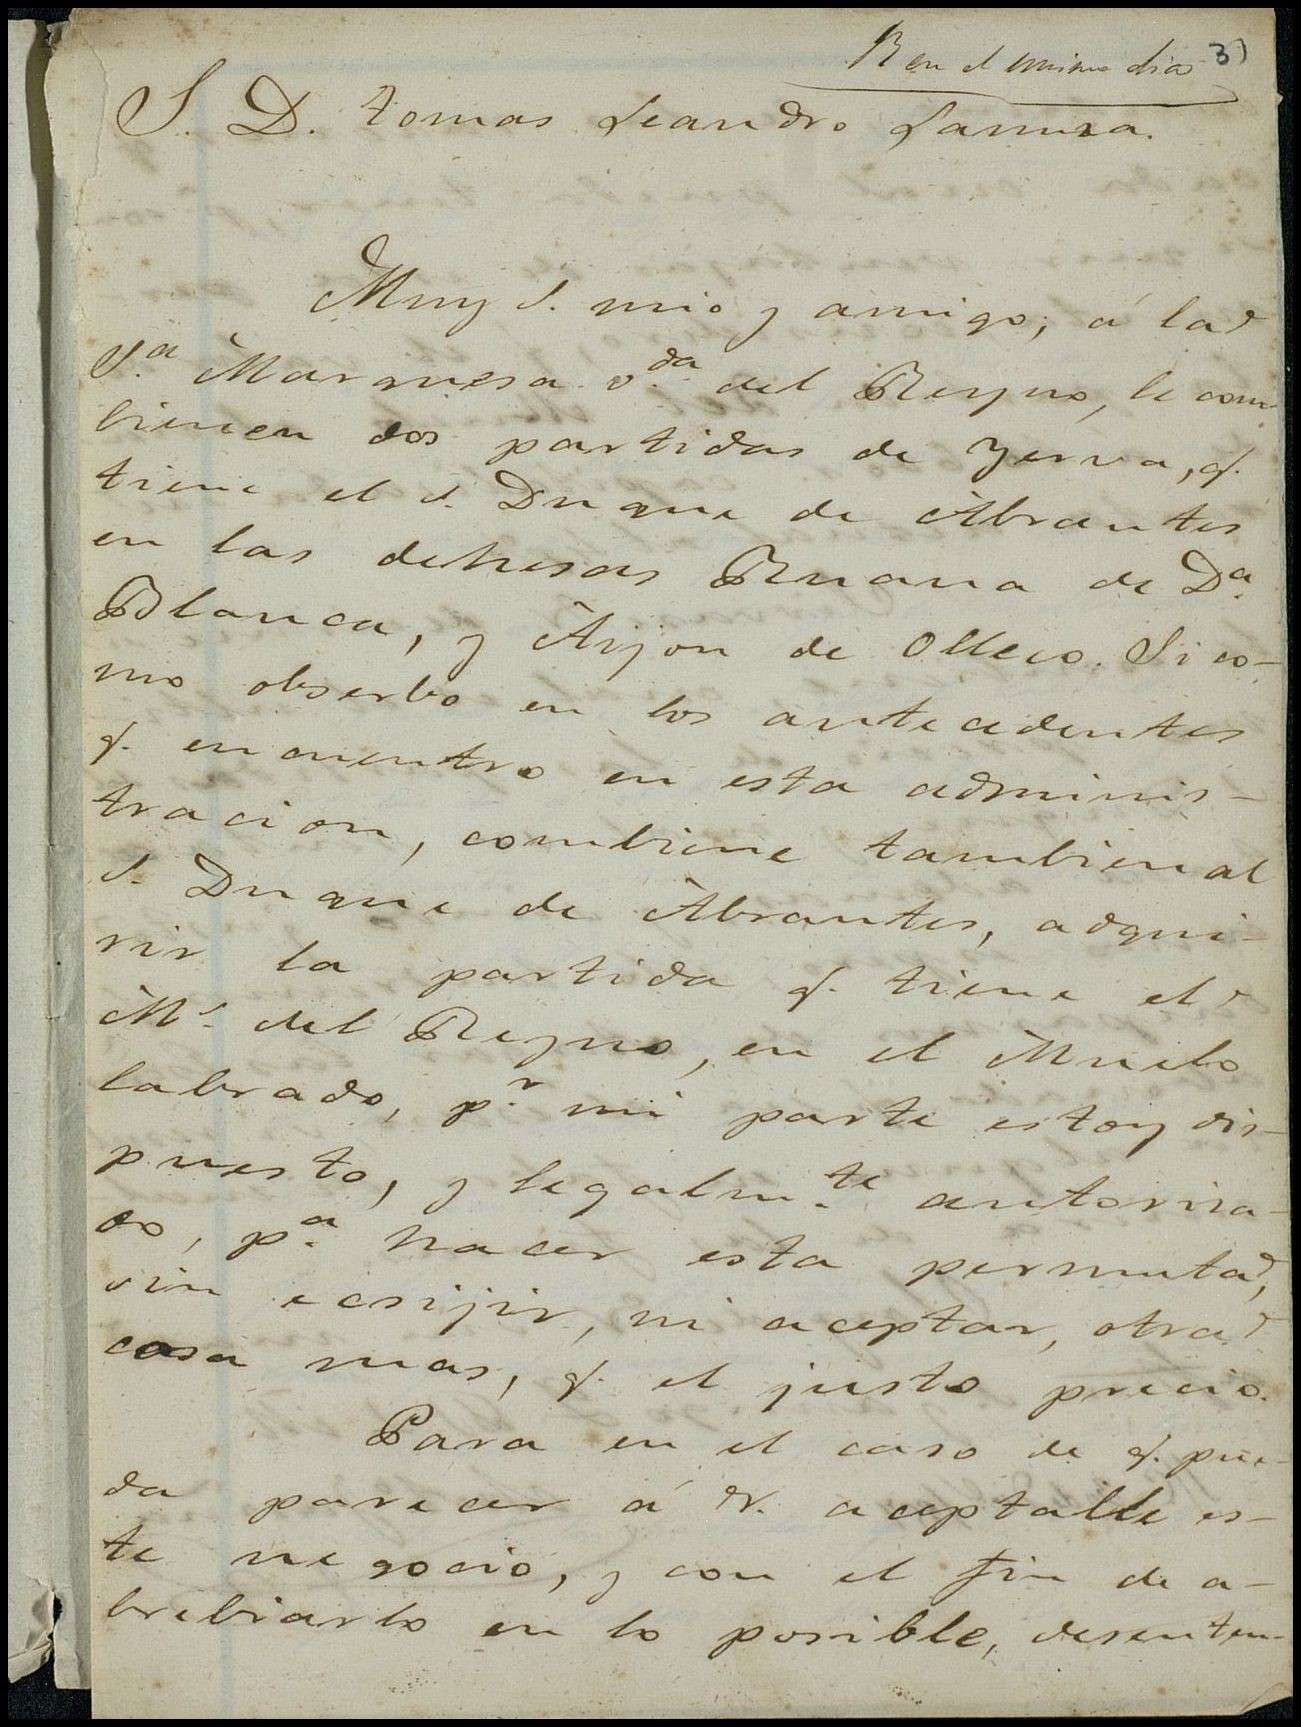 R en el mismo dia 3)
S. D. tomas Leandro Lamuza.
Muy S. mio y amigo; á la
S.a Marquesa v.da del Reyno, le com-
bienen dos partidas de Yerva, q.
tiene el S. Duque de Abrantes
en las dehesas Ruana de D.a
Blanca, y Arijon de Olleco. Si co-
mo observo en los antecedentes
q. encuentro en esta adminis-
tracion, combiene tambien al
S. Duque de Abrantes, adqui-
rir la partida q. tiene el
M.s del Reyno, en el Muelo
labrado, p.r mi parte estoy dis-
puesto, y legalm.te autoriza-
do, p.a hacer esta permuta,
sin ecsijir, ni aceptar, otra
cosa mas, q. el justo precio.
Para en el caso de q. pue-
da parecer á V. aceptable es-
te negocio, y con el fin de a-
brebiarlo en lo posible, desenten-